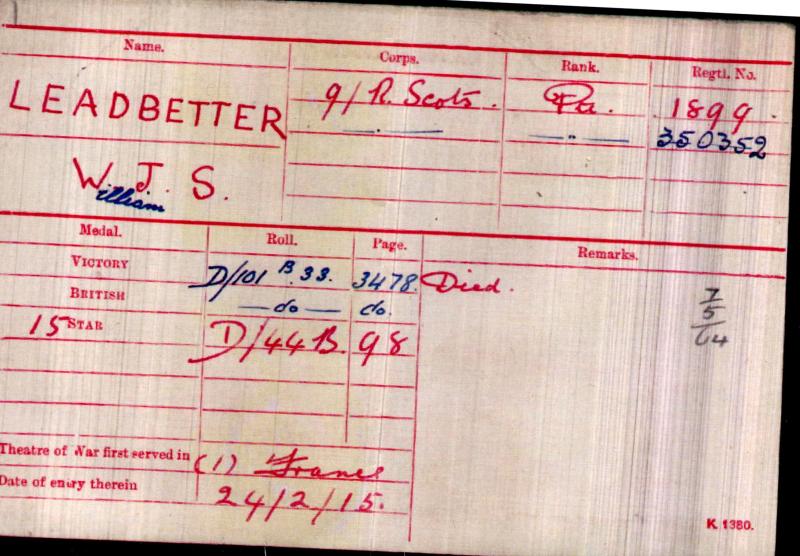 Name. Corps. Rank. Regtl. No.
LEADBETTER 9/R. Scots. Pte. 1899
—"— —"— 350352
W. J. S.
illiam
Medal. Roll. Page. Remarks.
VICTORY D/101 B. 33. 3478. Died.
BRITISH —do— do.
15 STAR D/44B. 98
7
5
64
Theatre of War first served in (1) France
Date of entry therein 24/2/15.
K 1380.